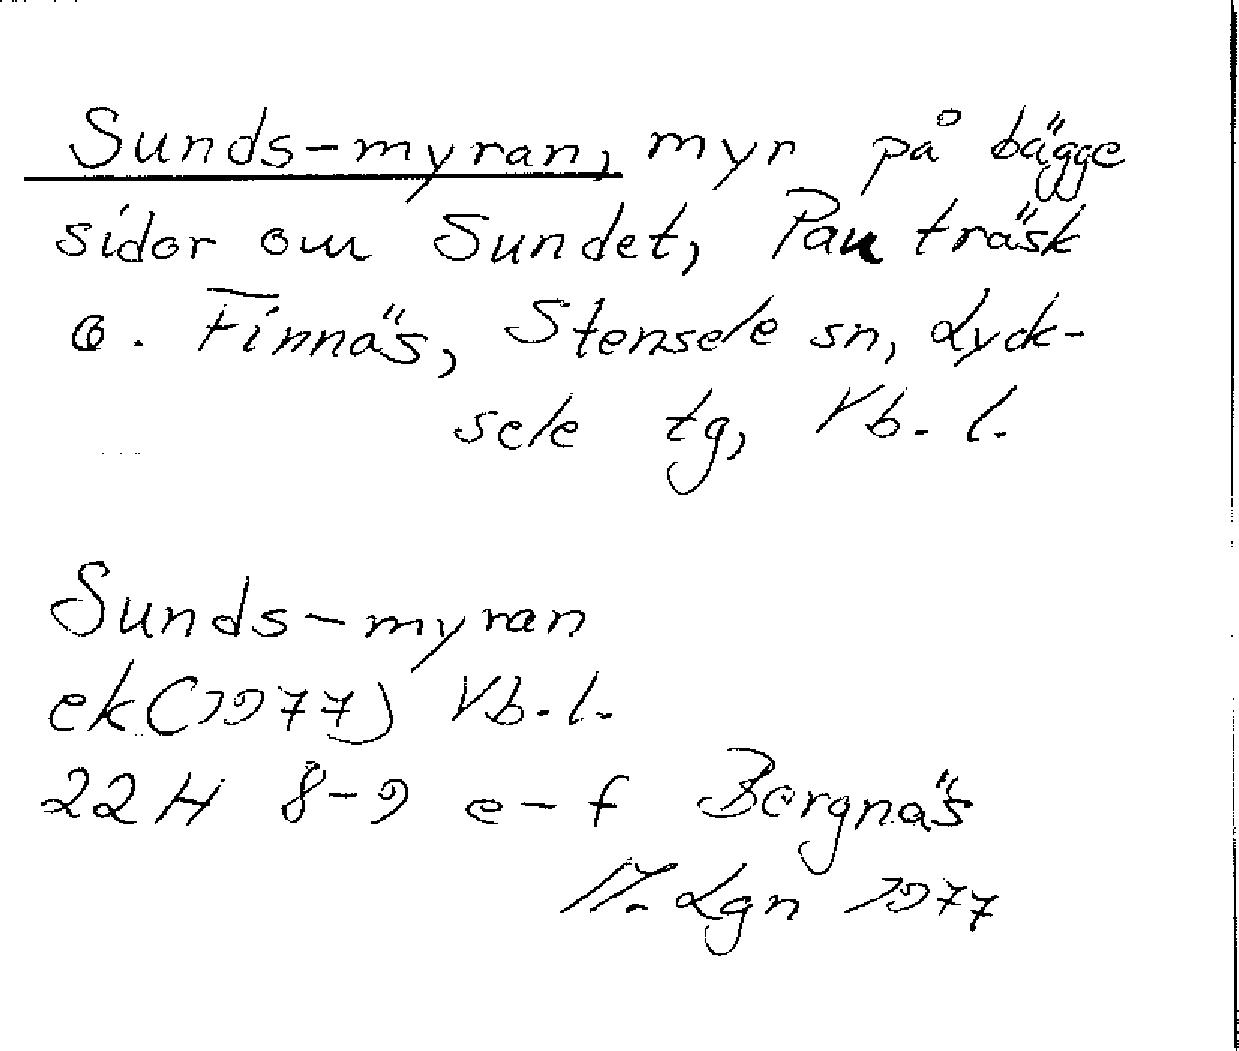 Sunds-myran, myr på bägge
sidor om Sundet, Pauträsk
o. Finnäs, Stensele sn, Lyck-
sele tg, Vb. l.
Sunds-myran
ek(1977) Vb. l.
22H 8-9 e-f Bergnäs
Lgn 1977